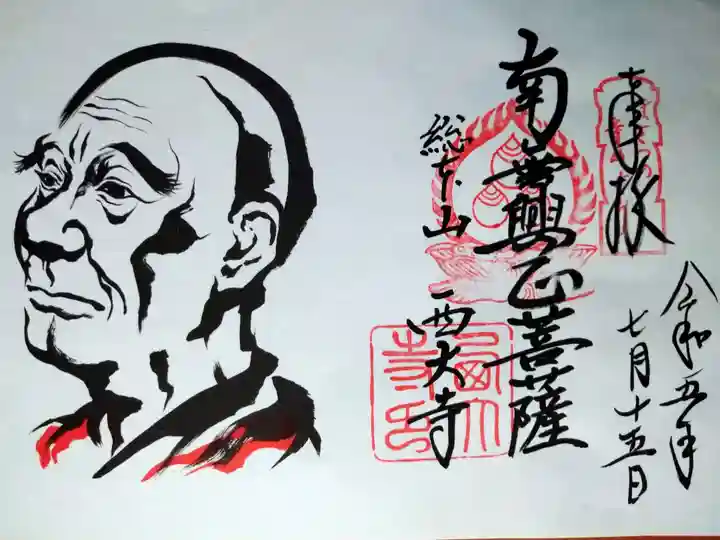 奉拝
令和五年
七月十五日
南無興正菩薩
総本山 西大寺